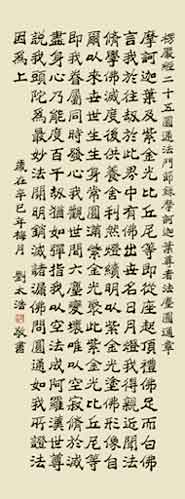 楞嚴經二十五圓通法門節錄摩訶迦葉尊者法塵圓通章
摩訶迦葉及紫金光比丘尼等即從座起頂禮佛足而白佛
言我於往劫於此界中有佛出世名日月燈我得親近聞法
脩學佛滅度後供養舍利然燈續明以紫光金塗佛形像自
爾以來世世生生身常圓滿紫金光聚此紫金光比丘尼等
即我眷屬同時發心我觀世間六塵變壞唯以空寂脩於滅
盡身心乃能度百千劫猶如彈指我以空法成阿羅漢世尊
說我頭陀為最妙法開明銷滅諸漏佛問圓通如我所證法
因為上
歲在辛巳年梅月 劉太浩 敬書